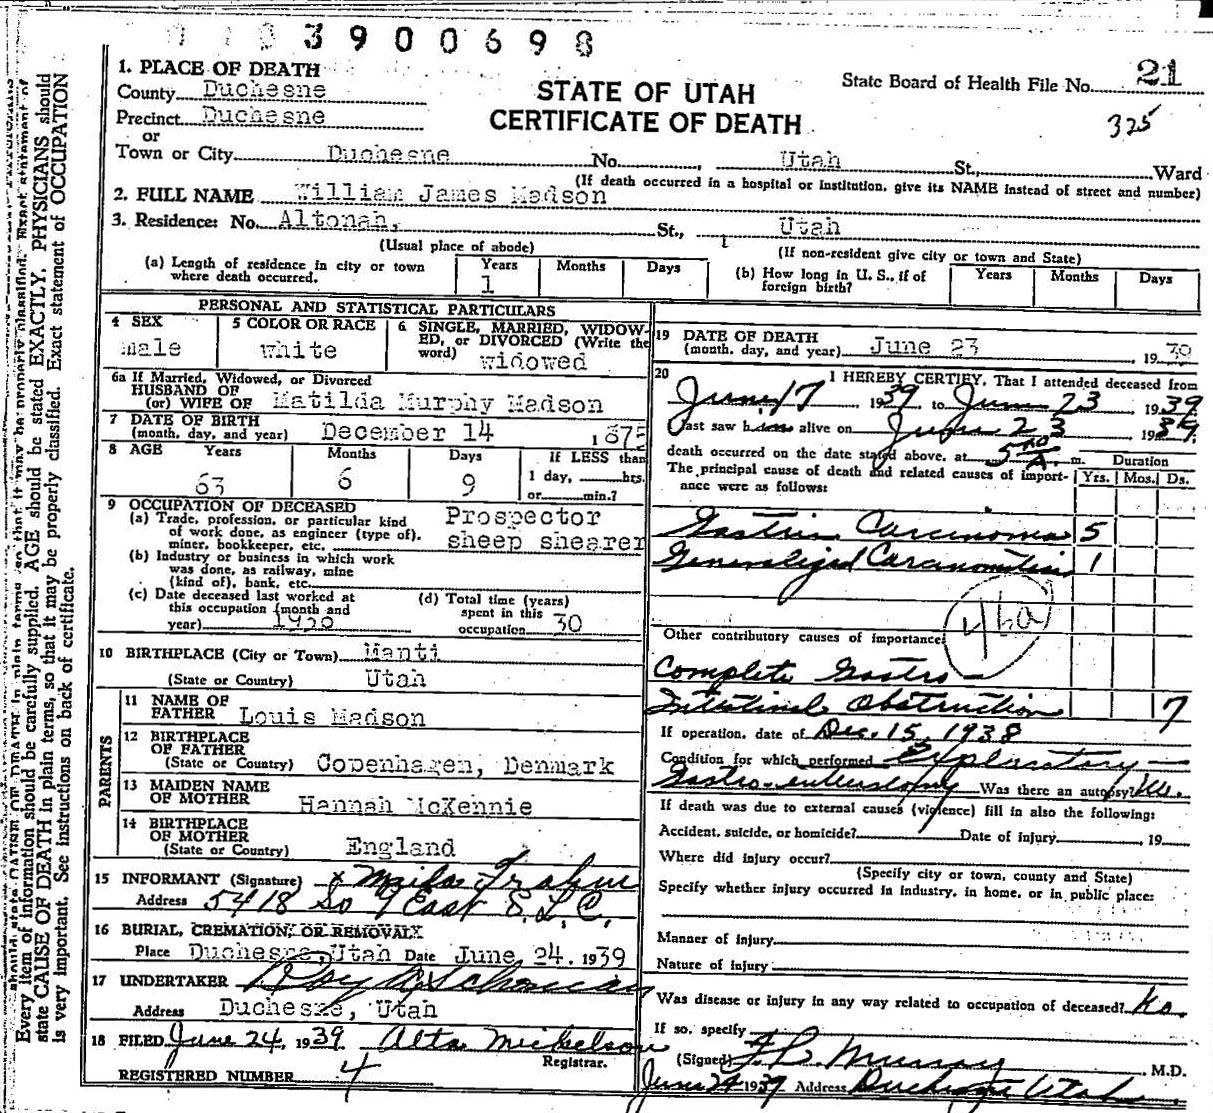 3900698
1. PLACE OF DEATH
County Duchesne
Precinct Duchesne
or
Town or City Duchesne No. , Utah St., Ward
STATE OF UTAH
CERTIFICATE OF DEATH
State Board of Health File No. 21
325
(If death occurred in a hospital or institution, give its NAME instead of street and number)
2. FULL NAME William James Madson
3. Residence: No. Altonah, St., Utah
(Usual place of abode) (If non-resident give city or town and State)
(a) Length of residence in city or town where death occurred. Years 1 Months Days
(b) How long in U. S., if of foreign birth? Years Months Days
PERSONAL AND STATISTICAL PARTICULARS
4 SEX male
5 COLOR OR RACE white
6 SINGLE, MARRIED, WIDOWED, or DIVORCED (Write the word) widowed
6a If Married, Widowed, or Divorced
HUSBAND OF
(or) WIFE OF Matilda Murphy Madson
7 DATE OF BIRTH
(month, day, and year) December 14 1875
8 AGE Years 63 Months 6 Days 9 If LESS than 1 day, hrs. or min.?
9 OCCUPATION OF DECEASED
(a) Trade, profession, or particular kind of work done, as engineer (type of), miner, bookkeeper, etc. Prospector sheep shearer
(b) Industry or business in which work was done, as railway, mine (kind of), bank, etc.
(c) Date deceased last worked at this occupation (month and year)
(d) Total time (years) spent in this occupation 30
10 BIRTHPLACE (City or Town) Manti
(State or Country) Utah
PARENTS
11 NAME OF FATHER Louis Madson
12 BIRTHPLACE OF FATHER
(State or Country) Copenhagen, Denmark
13 MAIDEN NAME OF MOTHER Hannah McKennie
14 BIRTHPLACE OF MOTHER
(State or Country) England
15 INFORMANT (Signature) x
Address 5418 So 9 East S.L.C.
16 BURIAL, CREMATION, OR REMOVAL
Place Duchesne, Utah Date June 24. 1939
17 UNDERTAKER Roy
Address Duchesne, Utah
18 FILED June 24, 1939. Alta Mickelson
Registrar.
REGISTERED NUMBER 4
19 DATE OF DEATH
(month, day, and year) June 23 , 1939
20 I HEREBY CERTIFY, That I attended deceased from
June 17 1939 to June 23 1939
last saw h alive on June 23 1939
death occurred on the date stated above, at A. m. Duration
The principal cause of death and related causes of importance were as follows: Yrs. Mos. Ds.
Gastric Carcinoma 5
Generalized Carcinomatosis 1
46a
Other contributory causes of importance:
Complete Gastro-
Intestinal Obstruction 7
If operation, date of Dec. 15, 1938
Condition for which performed Exploratory —
Gastro-enterostomy Was there an autopsy?
If death was due to external causes (violence) fill in also the following:
Accident, suicide, or homicide? Date of injury , 19
Where did injury occur?
(Specify city or town, county and State)
Specify whether injury occurred in industry, in home, or in public place:
Manner of injury
Nature of injury
Was disease or injury in any way related to occupation of deceased? No.
If so, specify
(Signed) Murray , M.D.
June 24 1939 Address Duchesne Utah
Every item of information should be carefully supplied. AGE should be stated EXACTLY. PHYSICIANS should
state CAUSE OF DEATH in plain terms, so that it may be properly classified. Exact statement of OCCUPATION
is very important. See instructions on back of certificate.